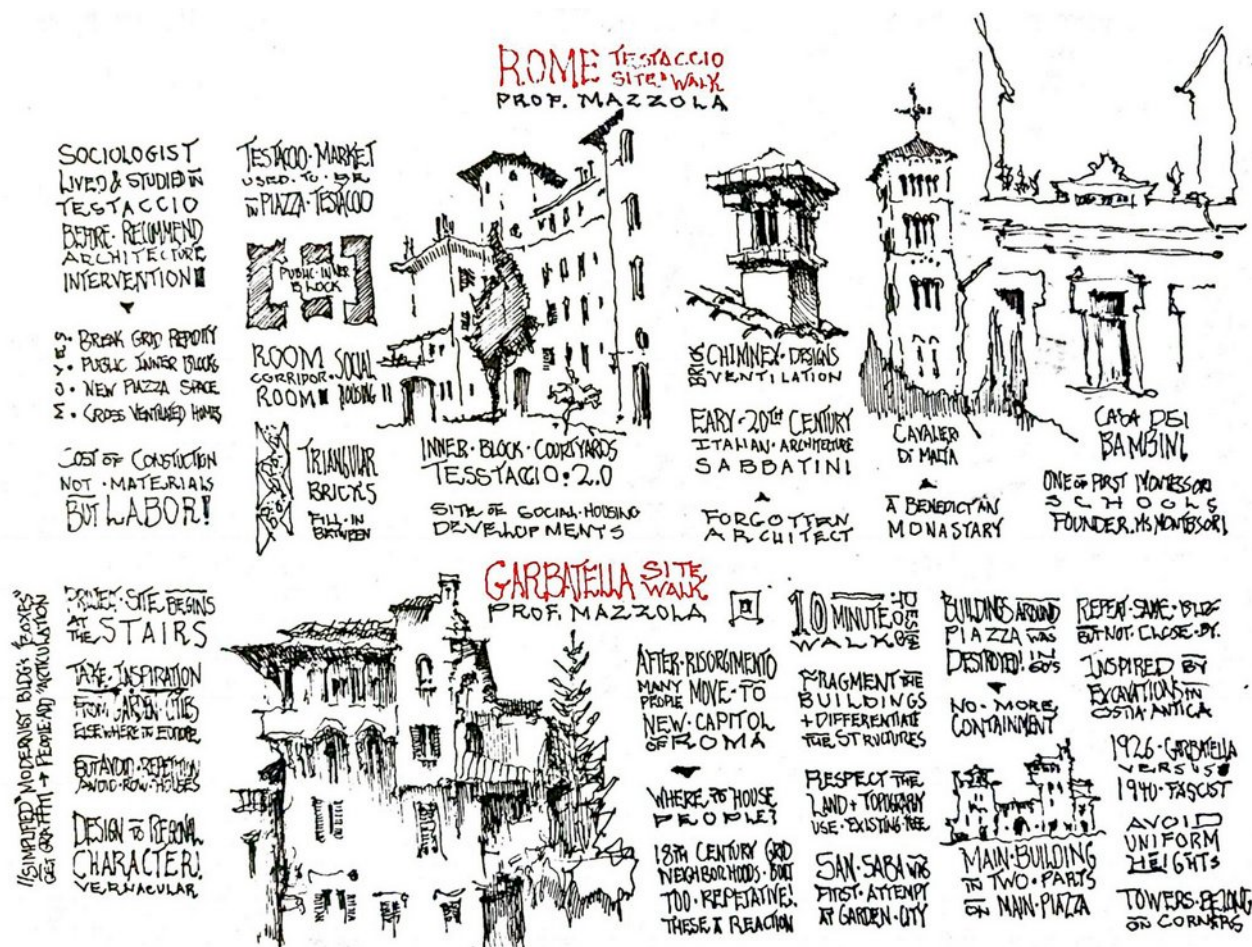 ROME TESTACCIO
SITE WALK
PROF. MAZZOLA
SOCIOLOGIST
LIVED & STUDIED IN
TESTACCIO
BEFORE RECOMMEND
ARCHITECTURE
INTERVENTION
BREAK GRID
PUBLIC INNER BLOCKS
NEW PIAZZA SPACE
CROSS VENTILATED HOMES
COST OF CONSTUCTION
NOT MATERIALS
BUT LABOR!
TESTACCIO MARKET
USED TO BE
IN PIAZZA TESTACCIO
PUBLIC INNER
BLOCK
ROOM
CORRIDOR
ROOM
SOCIAL
HOUSING
TRIANGULAR
BRICKS
FILL IN
BETWEEN
INNER BLOCK COURTYARDS
TESSTACCIO 2.0
SITE OF SOCIAL HOUSING
DEVELOPMENTS
CHIMNEY DESIGNS
VENTILATION
EARY 20TH CENTURY
ITALIAN ARCHITECTURE
SABBATINI
FORGOTTEN
ARCHITECT
CAVALIERI
DI MALTA
A BENEDICTAN
MONASTARY
CASA DEI
BAMBINI
ONE OF FIRST MONTESSORI
SCHOOLS
FOUNDER. MS MONTESSORI
GARBATELLA SITE
WALK
PROF. MAZZOLA
"SIMPLIFIED" MODERNIST BLDG'S "BOXES"
GET GRAFFITI → PEOPLE ADD "ARTICULATION"
PROJECT SITE BEGINS
AT THE STAIRS
TAKE INSPIRATION
FROM GARDEN CITIES
ELSEWHERE IN EUROPE
BUT AVOID REPETITION
AVOID ROW HOUSES
DESIGN TO REGIONAL
CHARACTER!
VERNACULAR
AFTER RISORGIMENTO
MANY PEOPLE MOVE TO
NEW CAPITOL
OF ROMA
WHERE TO HOUSE
PEOPLE?
18TH CENTURY GRID
NEIGHBORHOODS BUILT
TOO REPETATIVE!
THESE A REACTION
10 MINUTE
WALK
FRAGMENT THE
BUILDINGS
+ DIFFERENTIATE
THE STRUCTURES
RESPECT THE
LAND + TOPOGRAPHY
USE EXISTING TREE
SAN SABA WAS
FIRST ATTEMPT
AT GARDEN CITY
BUILDINGS AROUND
PIAZZA WAS
DESTROYED! IN 60'S
NO MORE
CONTAINMENT
MAIN BUILDING
IN TWO PARTS
ON MAIN PIAZZA
REPEAT SAME BLDG
BUT NOT CLOSE BY.
INSPIRED BY
EXCAVATIONS IN
OSTIA ANTICA
1926 GARBATELLA
VERSUS
1940 FASCIST
AVOID
UNIFORM
HEIGHTS
TOWERS BELONG
ON CORNERS